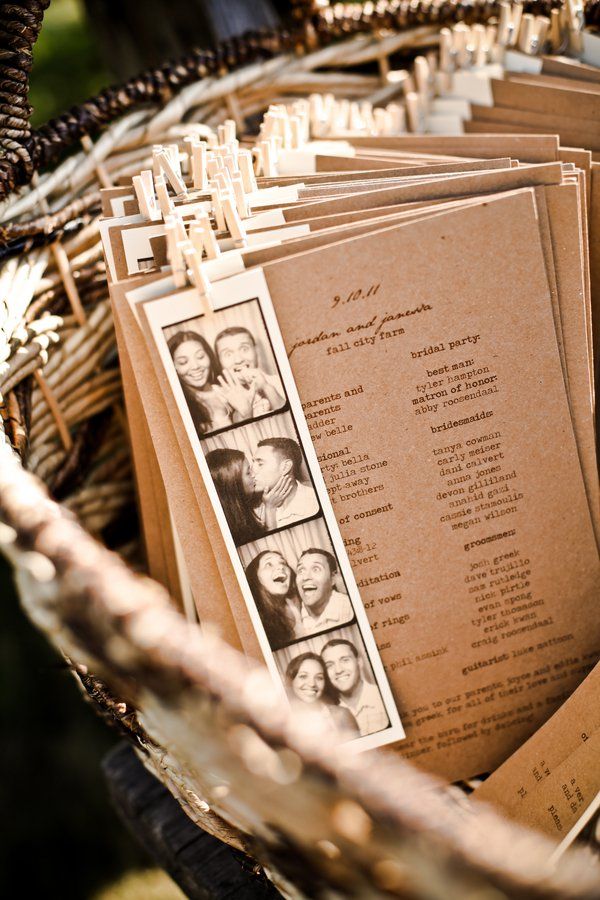 9.10.11
jordan and janessa
fall city farm
parents and
parents
adder
ew belle
sional
rty: bella
julia stone
pt-away
t brothers
of consent
ng
438-12
lvert
ditation
of vows
of rings
phil assink
bridal party:
best man:
tyler hampton
matron of honor:
abby roosendaal
bridesmaids:
tanya cowman
carly meiser
dani calvert
anna jones
devon gilliland
anahid gazi
cassie stamoulis
megan wilson
groomsmen:
josh greek
dave trujillo
sam rutledge
nick pirtle
evan spong
tyler thomason
erick kwan
craig roosendaal
guitarist: luke mattson
you to our parents, joyce and eddie
greek, for all of their love and
the barn for drinks and a
dinner, followed by dancing
a ver
and da
pleas